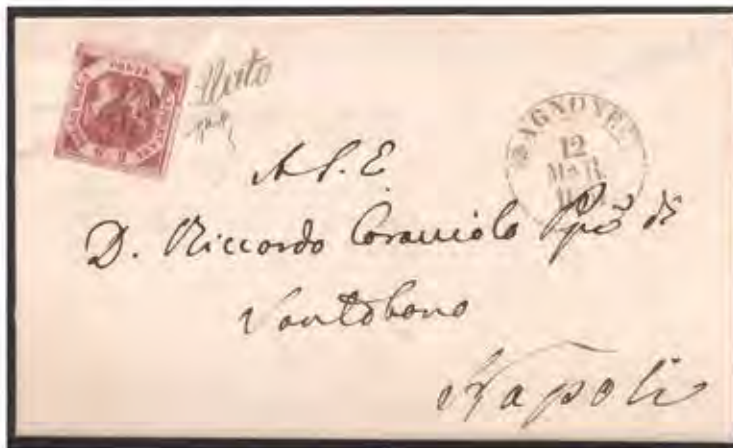 POSTA
AGNONE
12
MAR
A S. E.
D. Riccardo Caracciolo Ppe di
Santobono
Napoli